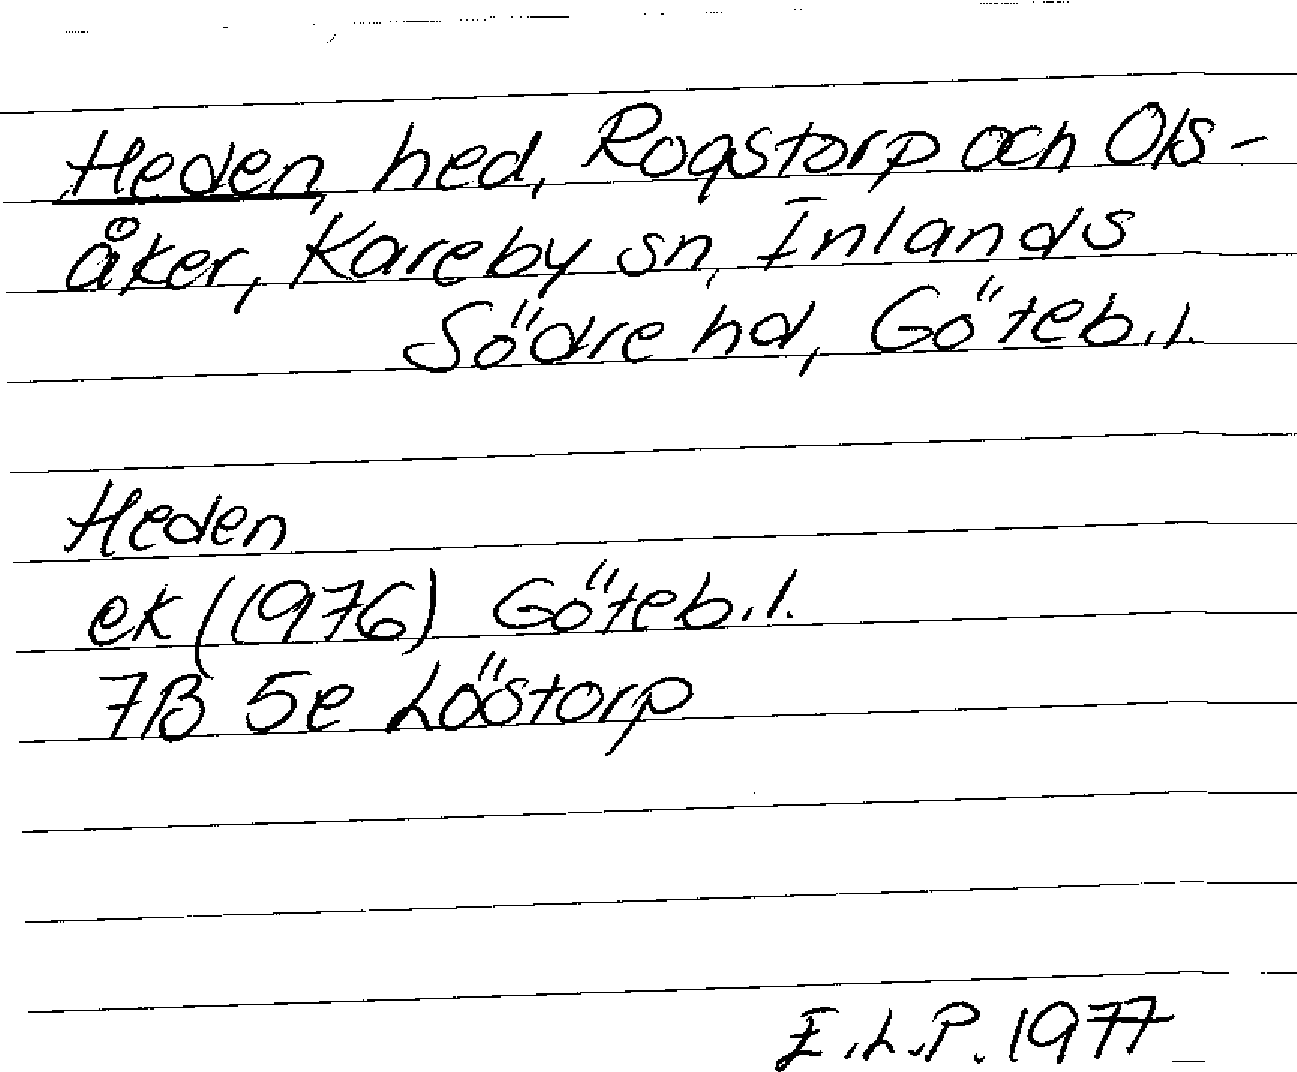 Heden, hed, Rogstorp och Ols-
åker, Kareby sn, Inlands
Södre hd, Göteb.l.
Heden
ek (1976) Göteb.l.
7B 5e Löstorp
E.L.P. 1977